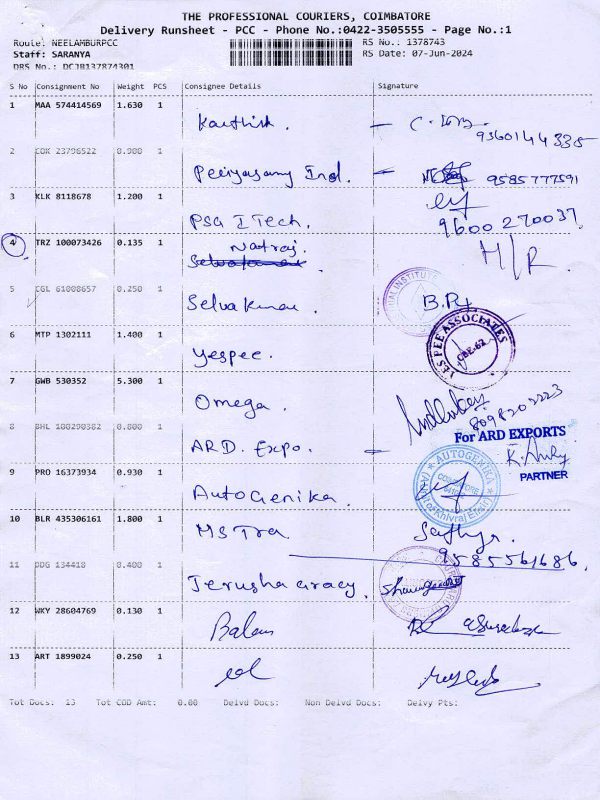 THE PROFESSIONAL COURIERS, COIMBATORE
Delivery Runsheet - PCC - Phone No.:0422-3505555 - Page No.:1
Route: NEELAMBURPCC RS No.: 1378743
Staff: SARANYA RS Date: 07-Jun-2024
DRS No.: DCJB137874301
S No Consignment No Weight PCS Consignee Details Signature
1 MAA 574414569 1.630 1
Karthick.
9360144335
2 COK 23796522 0.900 1
Periyasamy Ind. 9585777591
3 KLK 8118678 1.200 1
PSG ITech. 9600270037
4 TRZ 100073426 0.135 1
Natraj. M/R.
5 CGL 61008657 0.250 1
Selvakumar B.R
6 MTP 1302111 1.400 1
Yespee. YES PEE ASSOCIATES CBE-62
7 GWB 530352 5.300 1
Omega.
8 BHL 100290382 0.800 1
For ARD EXPORTS
ARD. Expo.
PARTNER
9 PRO 16373934 0.930 1
AutoGenika. AUTOGENIKA
10 BLR 435306161 1.800 1
MSTra
9585561686.
11 DDG 134418 0.400 1
Jerusha Gracy.
12 WKY 28604769 0.130 1
Balan
13 ART 1899024 0.250 1
Tot Docs: 13 Tot COD Amt: 0.00 Delvd Docs: Non Delvd Docs: Delvy Pts: